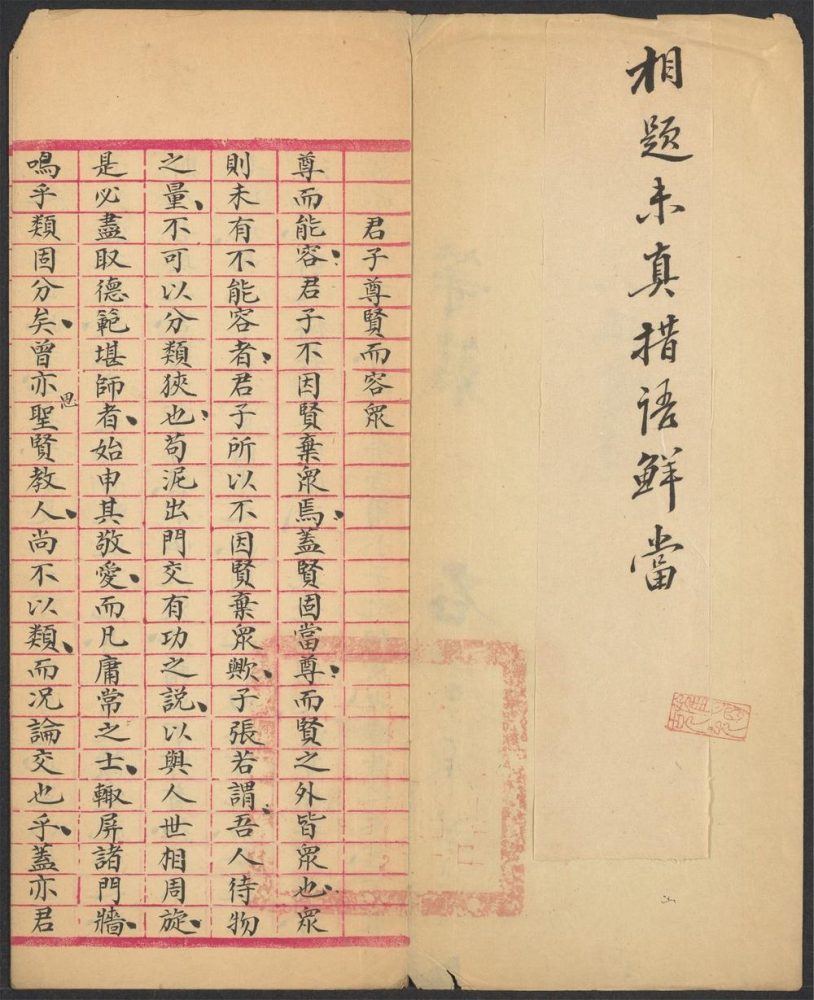 相題未真措語鮮當
君子尊賢而容眾
尊而能容君子不因賢棄眾焉蓋賢固當尊而賢之外皆眾也眾
則未有不能容者君子所以不因賢棄眾歟子張若謂吾人待物
之量不可以分類狹也苟泥出門交有功之說以與人世相周旋
是必盡取德範堪師者始申其敬愛而凡庸常之士輙屏諸門牆
鳴乎類固分矣曾亦思聖賢教人尚不以類而况論交也乎蓋亦君